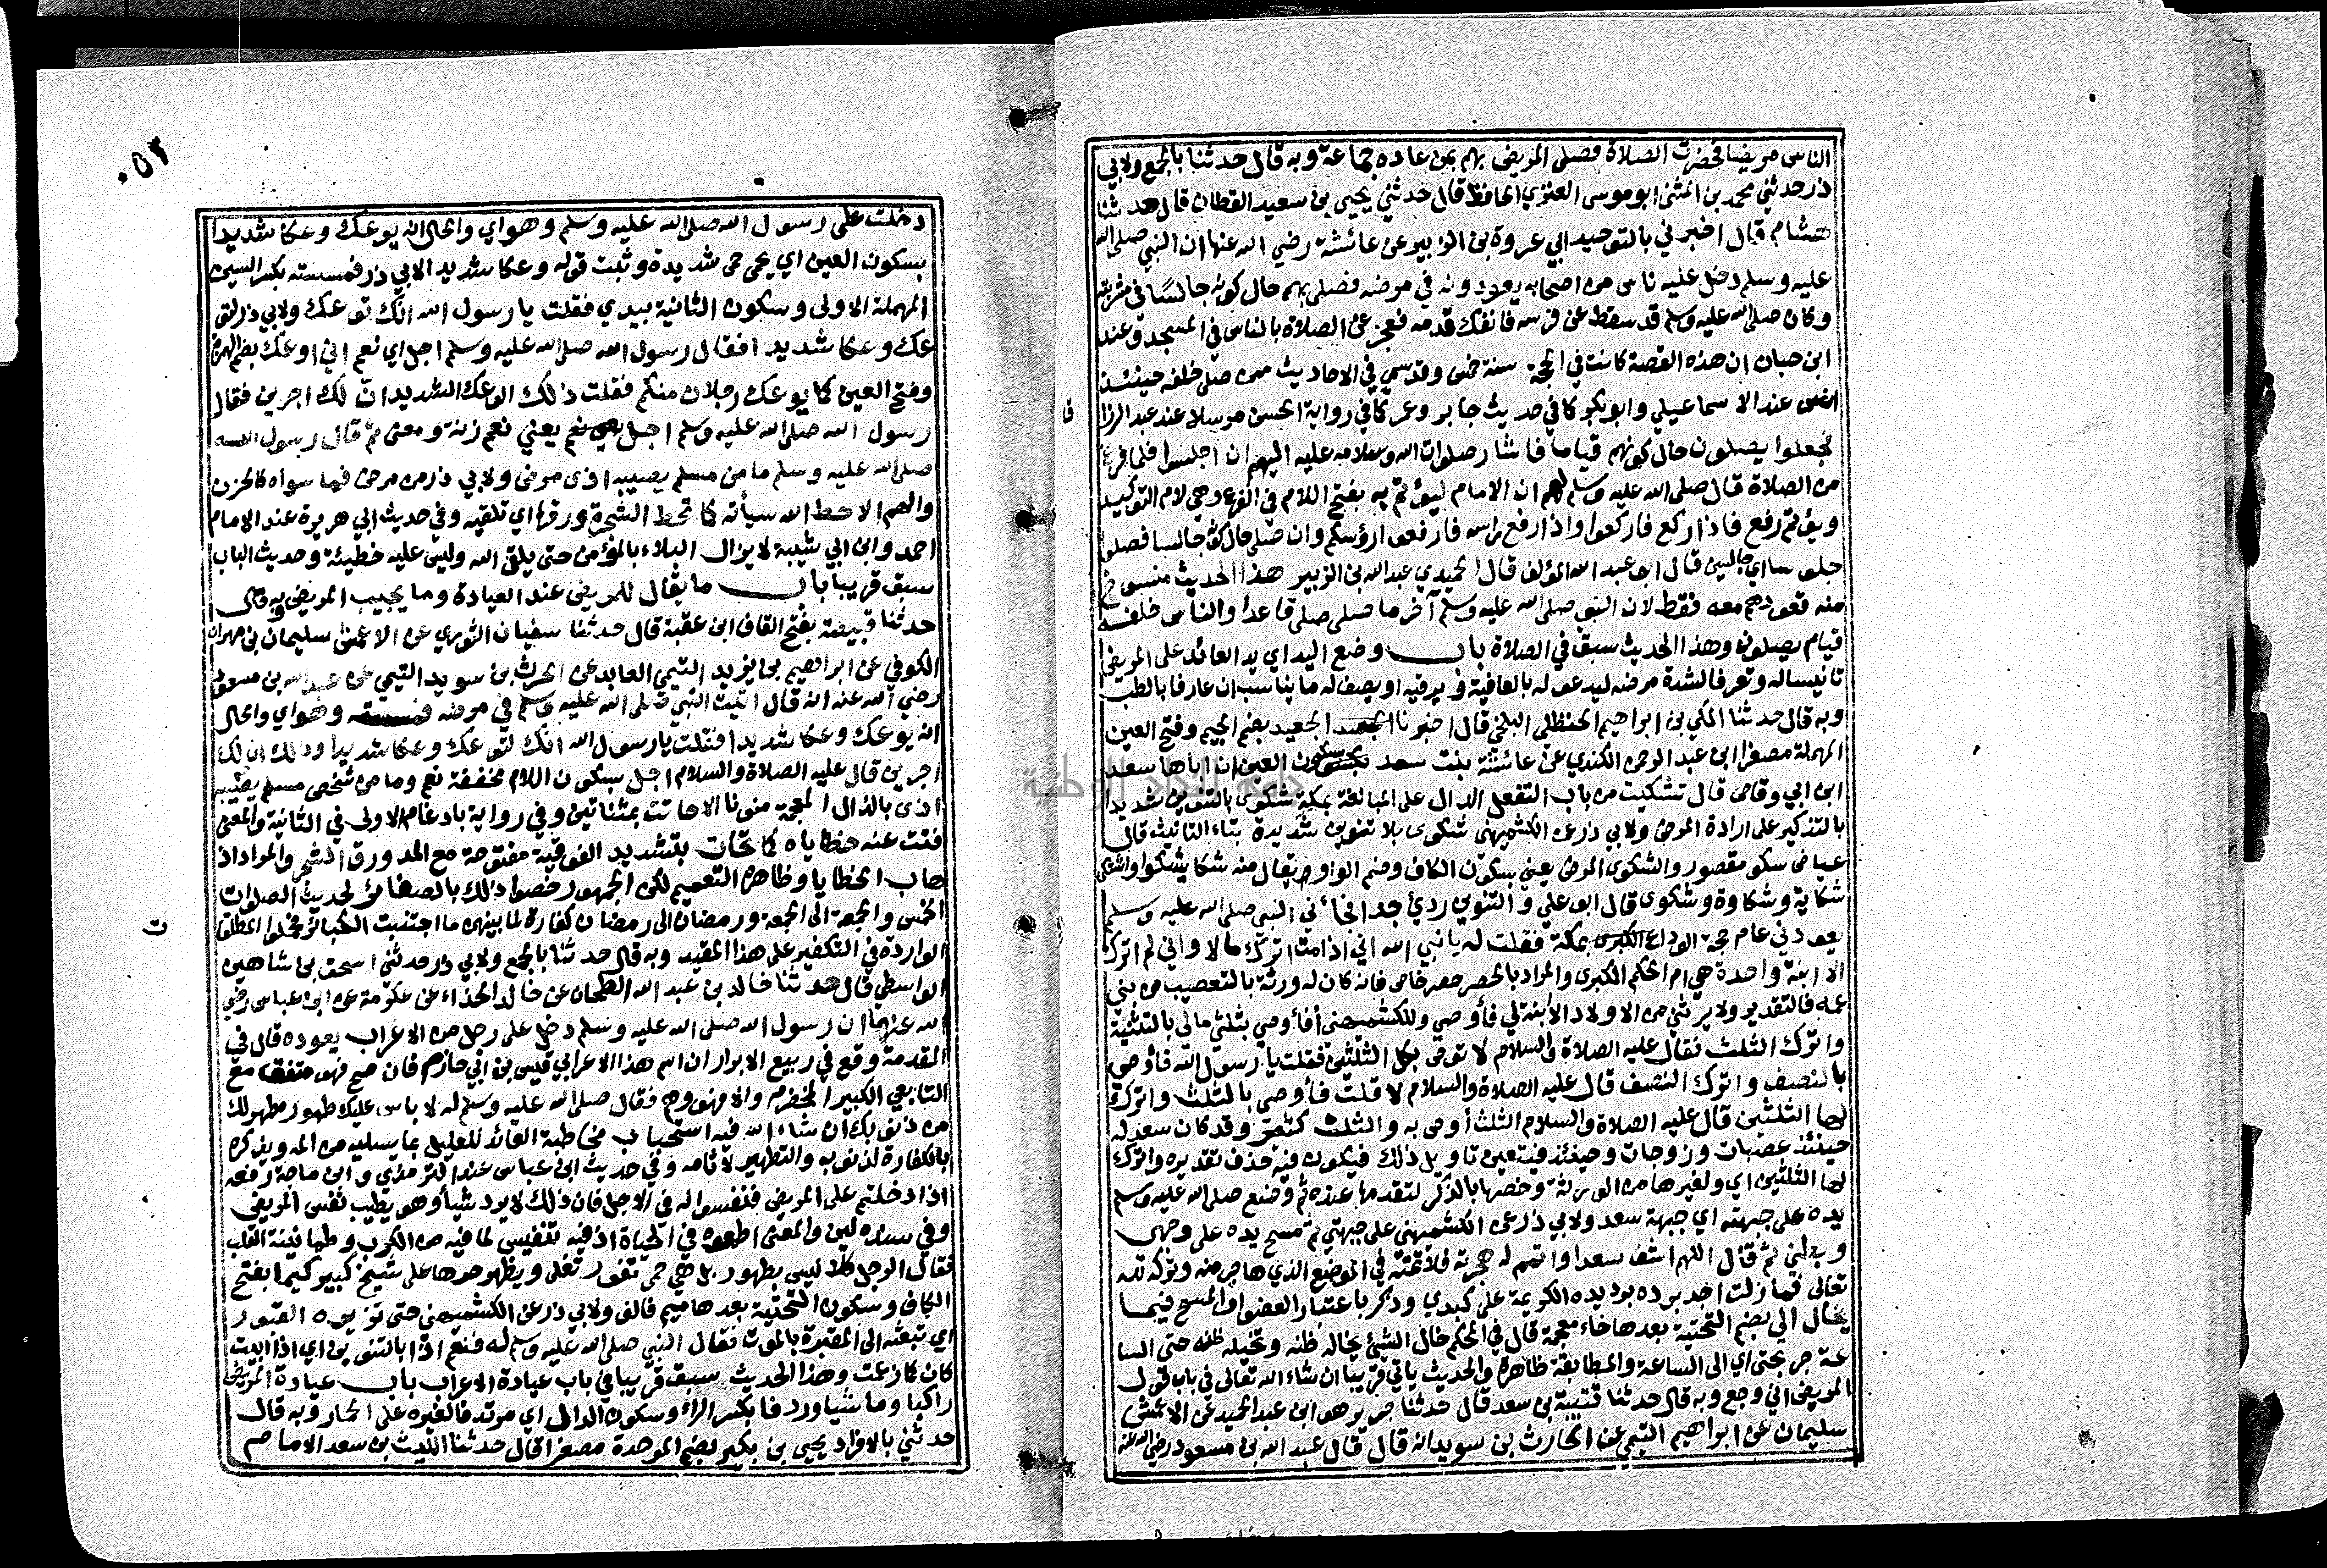 الناس مريضا فحضرت الصلاة فصلى المريض بهم بمن عاده جماعة وبه قال حدثنا بالجمع ولابي
ذر حدثني محمد بن المثنى ابو موسى العنزي الحافظ قال حدثني يحيى بن سعيد القطان قال حدثنا
هشام قال اخبرني بالتوحيد ابي عروة بن الزبير عن عائشة رضي الله عنها ان النبي صلى الله
عليه وسلم دخل عليه ناس من اصحابه يعودونه في مرضه فصلى بهم حال كونه جالسا في مشربة
وكان صلى الله عليه وسلم قد سقط عن فرسه فانفك قدمه فعجز عن الصلاة بالناس في المسجد وعند
ابن حبان ان هذه القصة كانت في الحجة سنة خمس وقد سمي في الاحاديث ممن صلى خلفه حينئذ
انس عند الاسماعيلي وابو بكر كما في حديث جابر وعمر كما في رواية الحسن مرسلا عند عبد الرزا
ق
فجعلوا يصلون حال كونهم قياما فاشار صلوات الله وسلامه عليه اليهم ان اجلسوا فلما فرغ
من الصلاة قال صلى الله عليه وسلم لهم ان الامام ليؤتم به بفتح اللام في الفرع وهي لام التوكيد
ويؤتم رفع فاذا ركع فاركعوا واذا رفع راسه فارفعوا رؤسكم وان صلى حال كونه جالسا فصلوا
جلوسا اي جالسين قال ابو عبد الله المؤلف قال الحميدي عبد الله بن الزبير هذا الحديث منسوخ
منه قعودهم معه فقط لان النبي صلى الله عليه وسلم آخر ما صلى صلى قاعدا والناس خلفه
قيام يصلون وهذا الحديث سبق في الصلاة باب وضع اليد اي يد العائد على المريض
تانيسا له وتعرفا لشدة مرضه ليدعو له بالعافية ويرقيه او يصف له ما يناسب ان عارفا بالطب
وبه قال حدثنا المكي بن ابراهيم الحنظلي البلخي قال اخبرنا الجعيد بضم الجيم وفتح العين
المهملة مصغرا ابن عبد الرحمن الكندي عن عائشة بنت سعد بسكون العين ان اباها سعد
ابن ابي وقاص قال تشكيت من باب التفعل الدال على المبالغة بمكة شكوى بالتنوين شديدا
بالتذكير على ارادة المرض ولابي ذر عن الكشميهني شكوى بلا تنوين شديدة بتاء التانيث قال
عياض سكو مقصور والشكوى المرض يعني بسكون الكاف وضم الواو ويقال منه شكا يشكوا واشتكى
شكاية وشكاوة وشكوى قال ابو علي والتنوين رديء جدا فجاءني النبي صلى الله عليه وسلم
يعودني عام حجة الوداع بمكة فقلت له يا نبي الله اني اذا مت اترك مالا واني لم اترك
الا ابنة واحدة هي ام الحكم الكبرى والمراد بالحصر حصر خاص فانه كان له ورثة بالتعصيب من بني
عمه فالتقدير ولا يرثني من الاولاد الا ابنة لي فأوصي وللكشميهني أفأوصي بثلثي مالي بالتثنية
واترك الثلث فقال عليه الصلاة والسلام لا توص بكل الثلثين فقلت يا رسول الله فأوصي
بالنصف واترك النصف قال عليه الصلاة والسلام لا قلت فأوصي بالثلث واترك
لها الثلثين قال عليه الصلاة والسلام الثلث أوصي به والثلث كثير وقد كان سعد له
حينئذ عصبات وزوجات وحينئذ فيتعين تاويل ذلك فيكون فيه حذف تقديره واترك
لها الثلثين اي ولغيرها من الورثة وخصها بالذكر لتقدمها عنده ثم وضع صلى الله عليه وسلم
يده على جبهته اي جبهة سعد ولابي ذر عن الكشميهني على جبهتي ثم مسح يده على وجهي
وبطني ثم قال اللهم اشف سعدا واتمم له هجرته فلا تمته في الموضع الذي هاجر منه وتركه لله
تعالى فما زلت اجد برده برد يده الكريمة على كبدي وذكر باعتبار العضو او المسح فيما
يخال الي بضم التحتية بعدها خاء معجمة قال في المحكم خال الشيء يخاله ظنه وتخيله ظنه حتى السا
عة جر بحتى اي الى الساعة والمطابقة ظاهرة والحديث ياتي قريبا ان شاء الله تعالى في باب قول
المريض اني وجع وبه قال حدثنا قتيبة بن سعد قال حدثنا جرير هو ابن عبد الحميد عن الاعمش
سليمان عن ابراهيم التيمي عن الحارث بن سويد انه قال قال عبد الله بن مسعود رضي الله عنه
٠٥٢
دخلت على رسول الله صلى الله عليه وسلم وهو اي والحال انه يوعك وعكا شديدا
بسكون العين اي يحمى حمى شديدة وثبت قوله وعكا شديد الابي ذر فمسسته بكسر السين
المهملة الاولى وسكون الثانية بيدي فقلت يا رسول الله انك توعك ولابي ذر لتو
عك وعكا شديدا فقال رسول الله صلى الله عليه وسلم اجل اي نعم اني اوعك بضم الهمزة
وفتح العين كما يوعك رجلان منكم فقلت ذلك الوعك الشديد ان لك اجرين فقال
رسول الله صلى الله عليه وسلم اجل نعم يعني نعم زنة ومعنى ثم قال رسول الله
صلى الله عليه وسلم ما من مسلم يصيبه اذى مرض ولابي ذر من مرض فما سواه كالحزن
والهم الا حط الله سيأته كما تحط الشجرة ورقها اي تلقيه وفي حديث ابي هريرة عند الامام
احمد وابن ابي شيبة لا يزال البلاء بالمؤمن حتى يلقى الله وليس عليه خطيئة وحديث الباب
سبق قريبا باب ما يقال للمريض عند العيادة وما يجيب المريض وبه قال
حدثنا قبيصة بفتح القاف ابن عقبة قال حدثنا سفيان الثوري عن الاعمش سليمان بن مهران
الكوفي عن ابراهيم بن يزيد التيمي العابد عن الحرث بن سويد التيمي عن عبد الله بن مسعود
رضي الله عنه انه قال اتيت النبي صلى الله عليه وسلم في مرضه وهو اي والحال
انه يوعك وعكا شديدا فقلت يا رسول الله انك لتوعك وعكا شديدا وذلك ان لك
اجرين قال عليه الصلاة والسلام اجل بسكون اللام مخففة نعم وما من شخص مسلم يصيبه
اذى بالذال المعجمة منونا الا حاتت بمثناتين وفي رواية بادغام الاولى في الثانية والمعنى
فتت عنه خطاياه كما تحات بتشديد الفوقية مفتوحة مع المد ورق الشجر والمراد اذ
هاب الخطايا وظاهره التعميم لكن الجمهور خصوا ذلك بالصغائر لحديث الصلوات
الخمس والجمعة الى الجمعة ورمضان الى رمضان كفارة لما بينهن ما اجتنبت الكبائر فحملوا المطلقا
ت
الواردة في التكفير على هذا المقيد وبه قال حدثنا بالجمع ولابي ذر حدثني اسحق بن شاهين
الواسطي قال حدثنا خالد بن عبد الله الطحان عن خالد الحذاء عن عكرمة عن ابن عباس رضي
الله عنهما ان رسول الله صلى الله عليه وسلم دخل على رجل من الاعراب يعوده قال في
المقدمة وقع في ربيع الابرار ان اسم هذا الاعرابي قيس بن ابي حازم فان صح فهو متفق مع
التابعي الكبير المخضرم والا فهو وهم فقال صلى الله عليه وسلم له لا باس عليك طهور مطهر لك
من ذنوبك ان شاء الله فيه استحباب مخاطبة العائد للعليل بما يسليه من المه ويذكره
بالكفارة لذنوبه والتطهير لآثامه وفي حديث ابن عباس عند الترمذي وابن ماجة رفعه
اذا دخلتم على المريض فنفسوا له في الاجل فان ذلك لا يرد شيأ وهو يطيب نفس المريض
وفي سنده لين والمعنى اطمعوه في الحياة اذ فيه تنفيس لما فيه من الكرب وطمانينة القلب
فقال الرجل كلا ليس بطهور بل هي حمى تفور تغلى ويظهر حرها على شيخ كبير كيما بفتح
الكاف وسكون التحتية بعدها ميم فالف ولابي ذر عن الكشميهني حتى تزيره القبور
اي تبعثه الى المقبرة بالموت فقال النبي صلى الله عليه وسلم له فنعم اذا بالتنوين اي اذا ابيت
كان كما زعمت وهذا الحديث سبق قريبا في باب عيادة الاعراب باب عيادة المريض
راكبا وماشيا وردفا بكسر الراء وسكون الدال اي مرتدفا لغيره على الحمار وبه قال
حدثني بالافراد يحيى بن بكير بضم الموحدة مصغرا قال حدثنا الليث بن سعد الامام